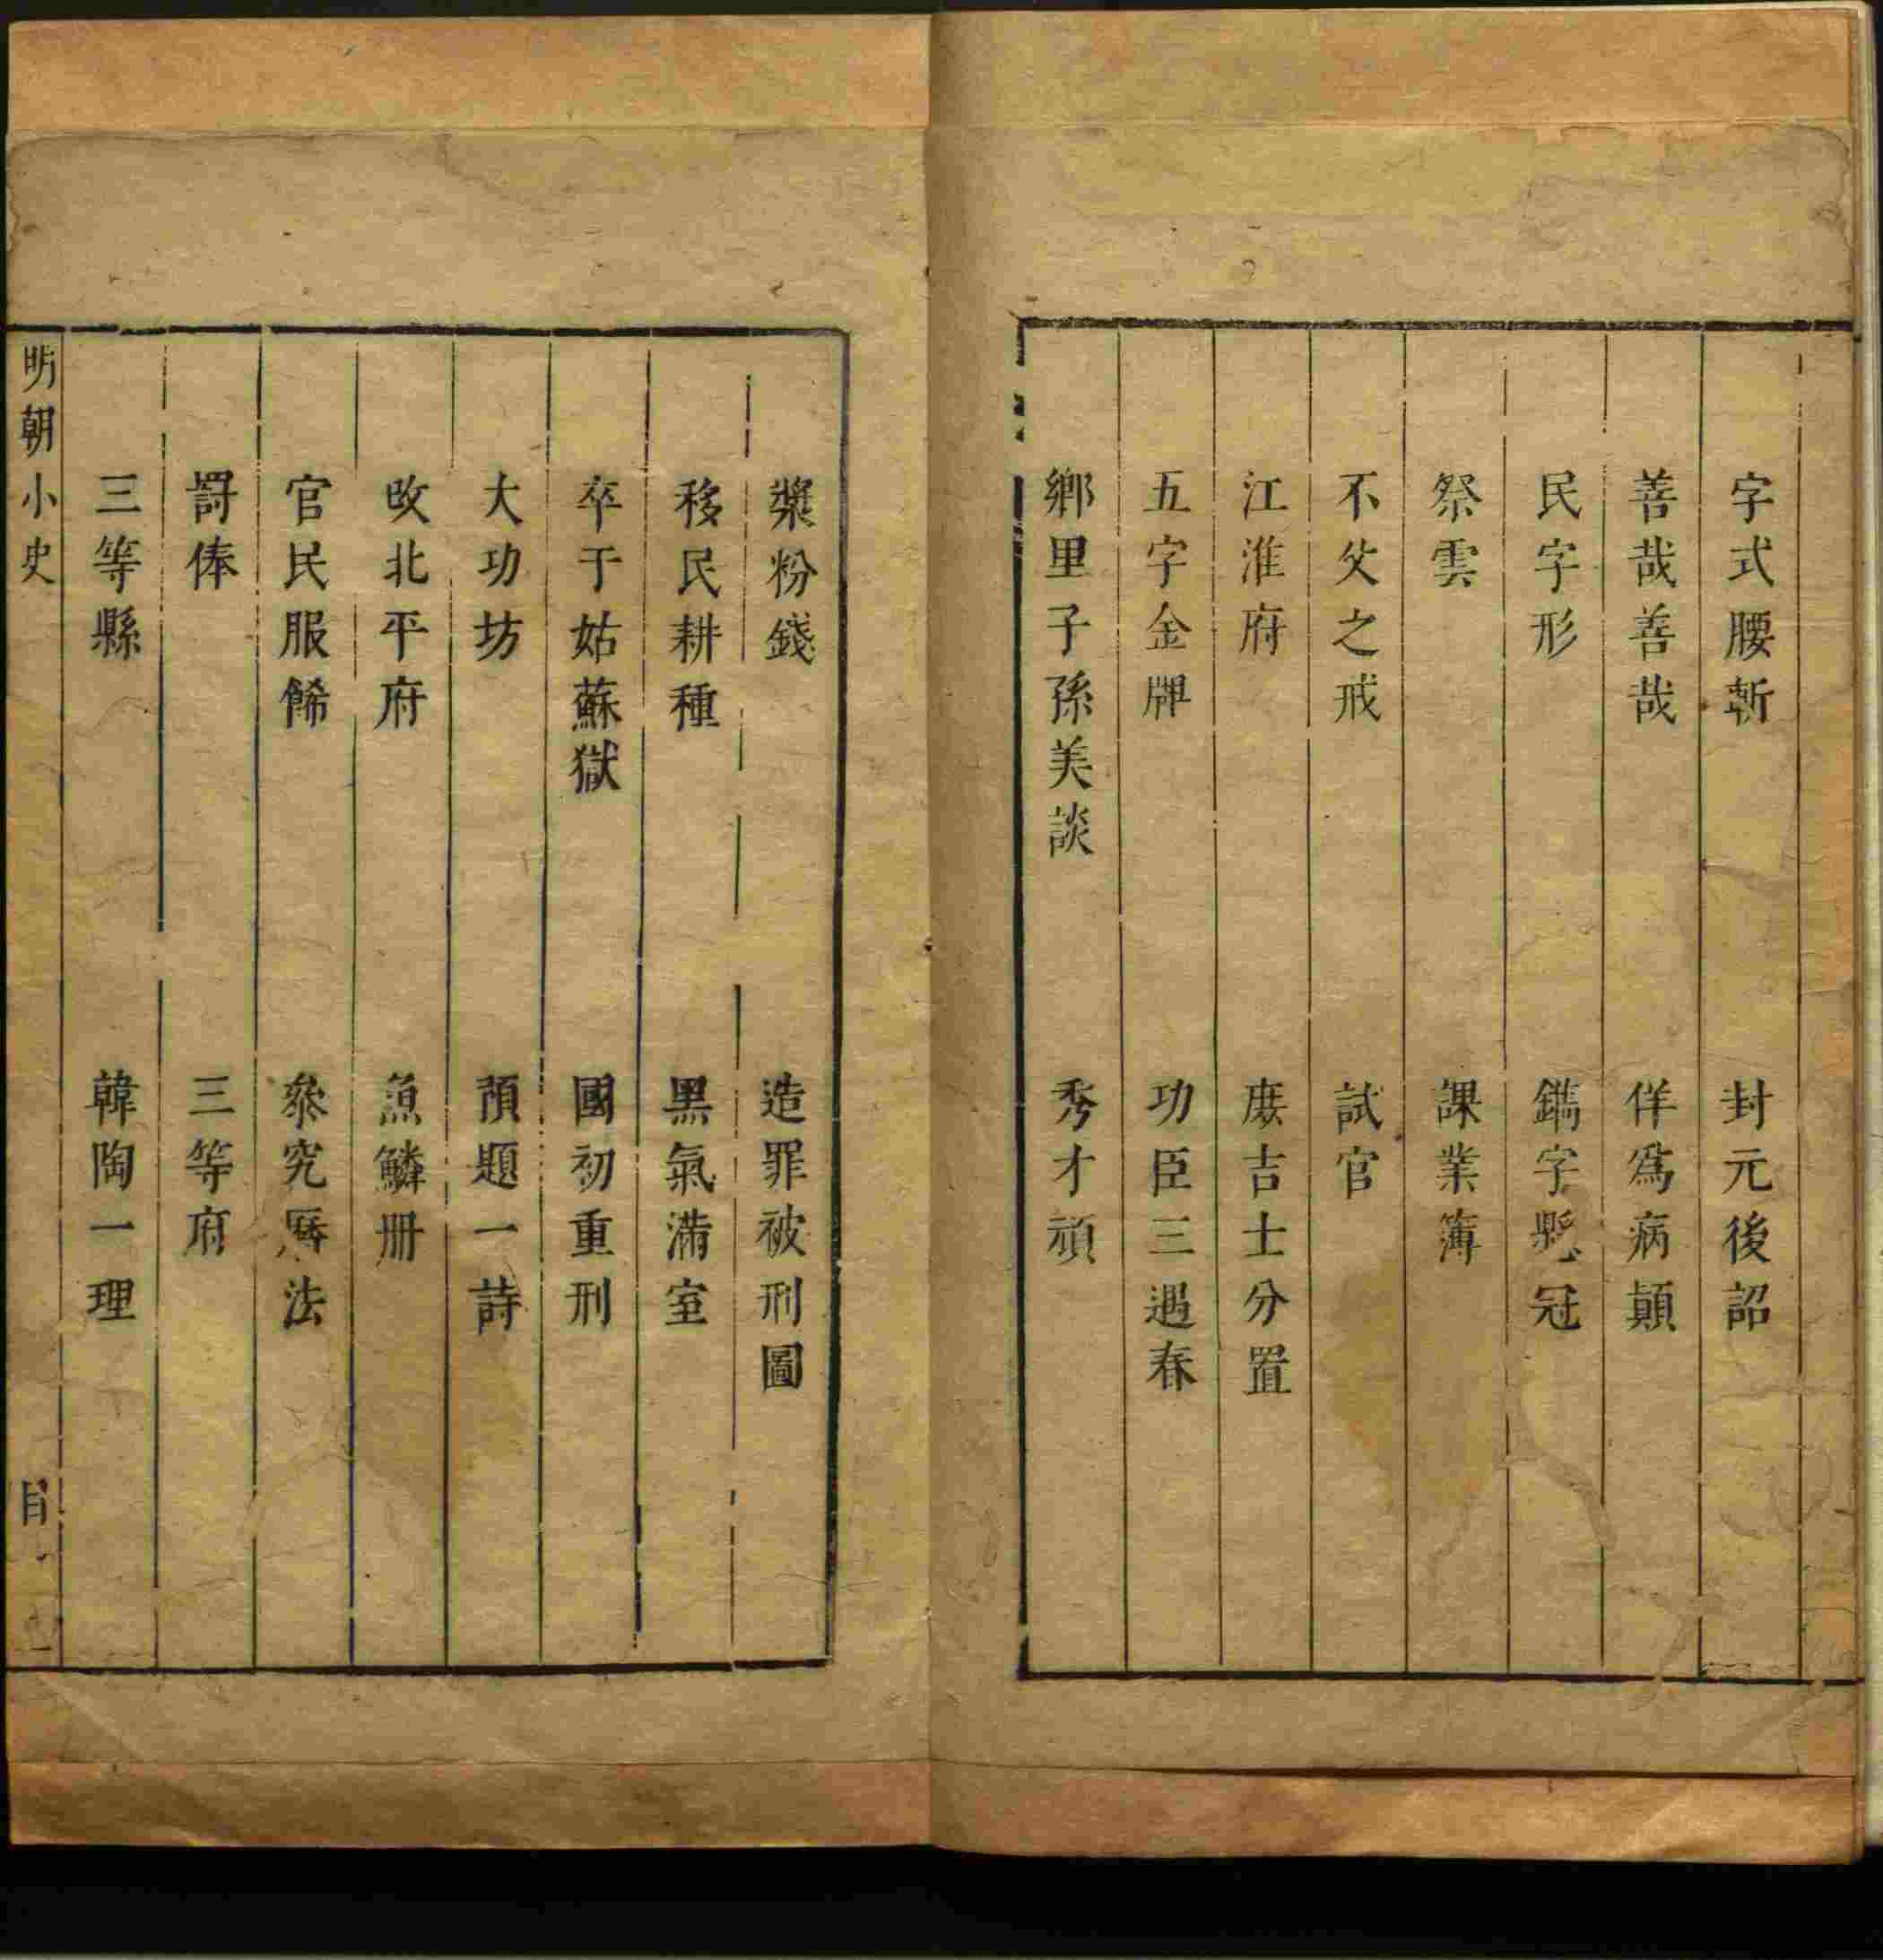 字式腰斬 封元後詔
善哉善哉 佯爲病顛
民字形 鐫字懸冠
祭雲 課業簿
不父之戒 試官
江淮府 庶吉士分置
五字金牌 功臣三遇春
鄉里子孫美談 秀才頑
漿粉錢 造罪被刑圖
移民耕種 黑氣滿室
卒于姑蘇獄 國初重刑
大功坊 預題一詩
改北平府 魚鱗冊
官民服餙 叅究曆法
罰俸 三等府
三等縣 韓陶一理
明朝小史 目